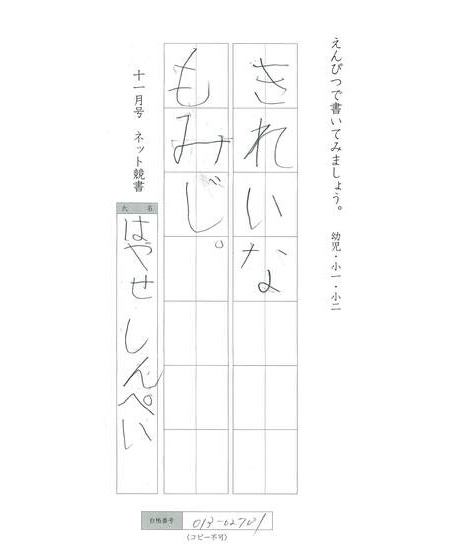 えんぴつで書いてみましょう。 幼児・小一・小二
きれいな
もみじ。
十一月号 ネット競書
氏名
はやせ しんぺい
台帳番号 013-02701
(コピー不可)